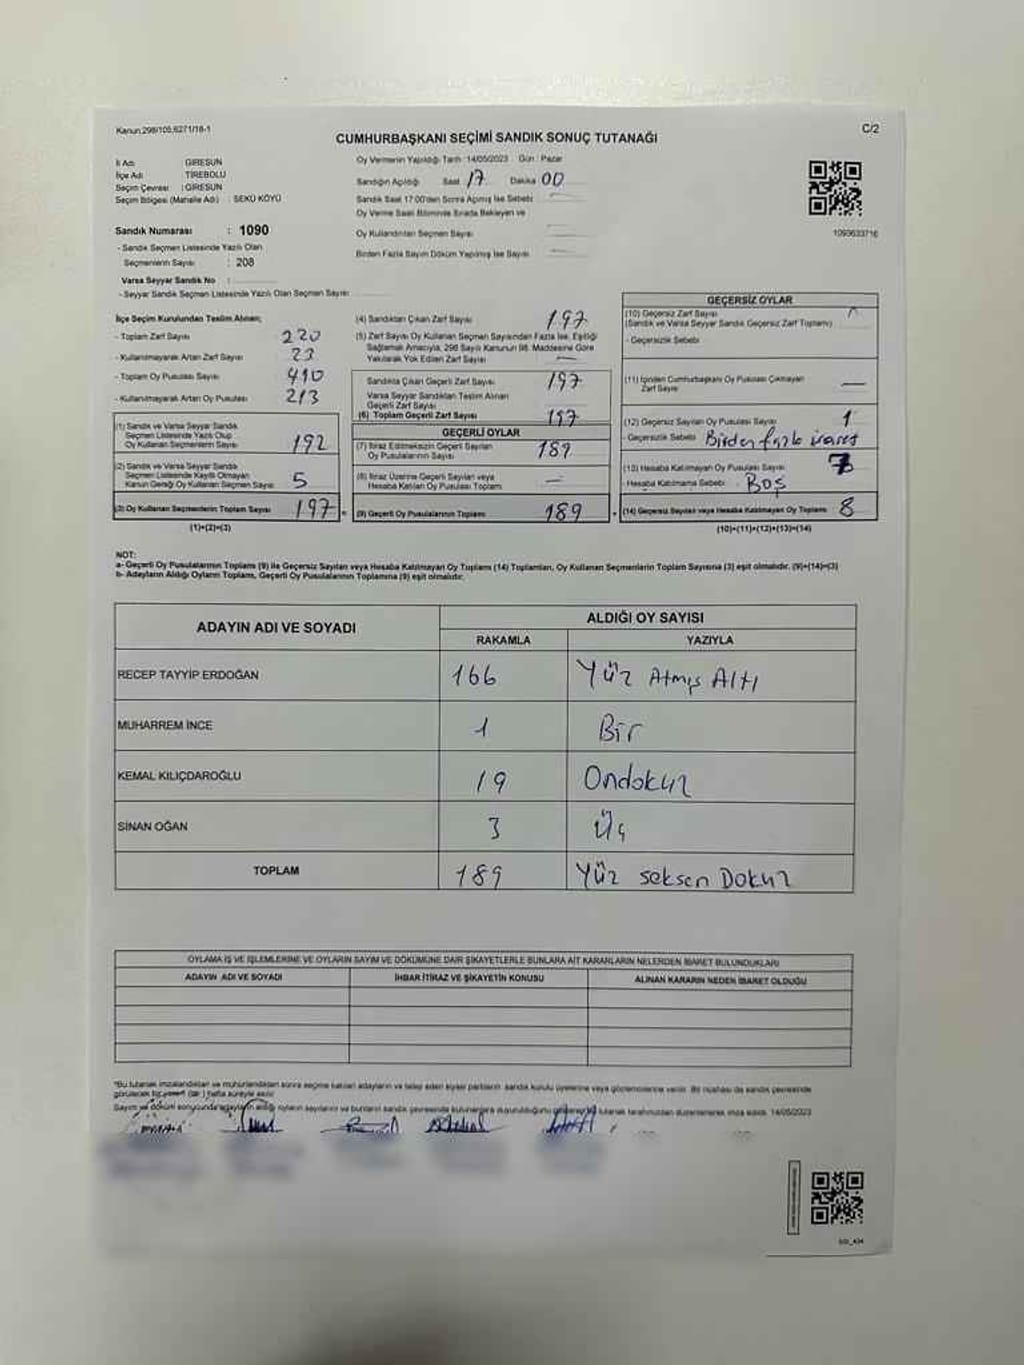 Kanun:298/105,6271/18-1
C/2
CUMHURBAŞKANI SEÇİMİ SANDIK SONUÇ TUTANAĞI
İl Adı : GİRESUN
İlçe Adı : TİREBOLU
Seçim Çevresi : GİRESUN
Seçim Bölgesi (Mahalle Adı) : SEKÜ KÖYÜ
Sandık Numarası : 1090
- Sandık Seçmen Listesinde Yazılı Olan
Seçmenlerin Sayısı : 208
Varsa Seyyar Sandık No :
- Seyyar Sandık Seçmen Listesinde Yazılı Olan Seçmen Sayısı
Oy Vermenin Yapıldığı Tarih :14/05/2023 Gün : Pazar
Sandığın Açıldığı Saat 17 Dakika 00
Sandık Saat 17:00'den Sonra Açılmış İse Sebebi
Oy Verme Saati Bitiminde Sırada Bekleyen ve
Oy Kullandırılan Seçmen Sayısı
Birden Fazla Sayım Döküm Yapılmış İse Sayısı
1090633716
İlçe Seçim Kurulundan Teslim Alınan;
- Toplam Zarf Sayısı 220
- Kullanılmayarak Artan Zarf Sayısı 23
- Toplam Oy Pusulası Sayısı 410
- Kullanılmayarak Artan Oy Pusulası 213
(1) Sandık ve Varsa Seyyar Sandık
Seçmen Listesinde Yazılı Olup
Oy Kullanan Seçmenlerin Sayısı 192
(2) Sandık ve Varsa Seyyar Sandık
Seçmen Listesinde Kayıtlı Olmayan
Kanun Gereği Oy Kullanan Seçmen Sayısı 5
(3) Oy Kullanan Seçmenlerin Toplam Sayısı 197 =
(1)+(2)=(3)
(4) Sandıktan Çıkan Zarf Sayısı 197
(5) Zarf Sayısı Oy Kullanan Seçmen Sayısından Fazla İse, Eşitliği
Sağlamak Amacıyla, 298 Sayılı Kanunun 98. Maddesine Göre
Yakılarak Yok Edilen Zarf Sayısı —
Sandıkta Çıkan Geçerli Zarf Sayısı 197
Varsa Seyyar Sandıktan Teslim Alınan
Geçerli Zarf Sayısı
(6) Toplam Geçerli Zarf Sayısı 197
GEÇERLİ OYLAR
(7) İtiraz Edilmeksizin Geçerli Sayılan
Oy Pusulalarının Sayısı 189
(8) İtiraz Üzerine Geçerli Sayılan veya
Hesaba Katılan Oy Pusulası Toplam —
(9) Geçerli Oy Pusulalarının Toplamı 189 +
GEÇERSİZ OYLAR
(10) Geçersiz Zarf Sayısı
(Sandık ve Varsa Seyyar Sandık Geçersiz Zarf Toplamı)
- Geçersizlik Sebebi
(11) İçinden Cumhurbaşkanı Oy Pusulası Çıkmayan
Zarf Sayısı —
(12) Geçersiz Sayılan Oy Pusulası Sayısı 1
- Geçersizlik Sebebi Birden fazla işaret
(13) Hesaba Katılmayan Oy Pusulası Sayısı 7
- Hesaba Katılmama Sebebi BOŞ
(14) Geçersiz Sayılan veya Hesaba Katılmayan Oy Toplamı 8
(10)+(11)+(12)+(13)=(14)
NOT:
a- Geçerli Oy Pusulalarının Toplamı (9) ile Geçersiz Sayılan veya Hesaba Katılmayan Oy Toplamı (14) Toplamları, Oy Kullanan Seçmenlerin Toplam Sayısına (3) eşit olmalıdır. (9)+(14)=(3)
b- Adayların Aldığı Oyların Toplamı, Geçerli Oy Pusulalarının Toplamına (9) eşit olmalıdır.
ADAYIN ADI VE SOYADI
ALDIĞI OY SAYISI
RAKAMLA YAZIYLA
RECEP TAYYİP ERDOĞAN 166 Yüz Atmış Altı
MUHARREM İNCE 1 Bir
KEMAL KILIÇDAROĞLU 19 Ondokuz
SİNAN OĞAN 3 Üç
TOPLAM 189 Yüz seksen Dokuz
OYLAMA İŞ VE İŞLEMLERİNE VE OYLARIN SAYIM VE DÖKÜMÜNE DAİR ŞİKAYETLERLE BUNLARA AİT KARARLARIN NELERDEN İBARET BULUNDUKLARI
ADAYIN ADI VE SOYADI İHBAR İTİRAZ VE ŞİKAYETİN KONUSU ALINAN KARARIN NEDEN İBARET OLDUĞU
*Bu tutanak imzalandıktan ve mühürlendikten sonra seçime katılan adayların ve talep eden siyasi partilerin sandık kurulu üyelerine veya gözlemcilerine verilir. Bir nüshası da sandık çevresinde
14/05/2023